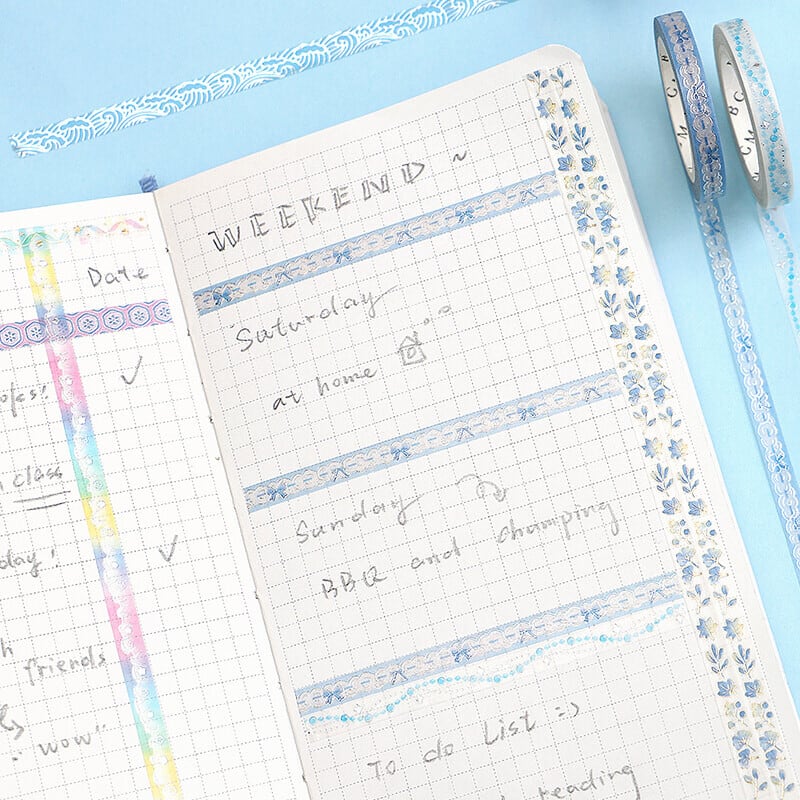 Date
class
friends
"wow"
WEEKEND ~
Saturday
at home
Sunday
BBQ and champing
To do List =>
reading